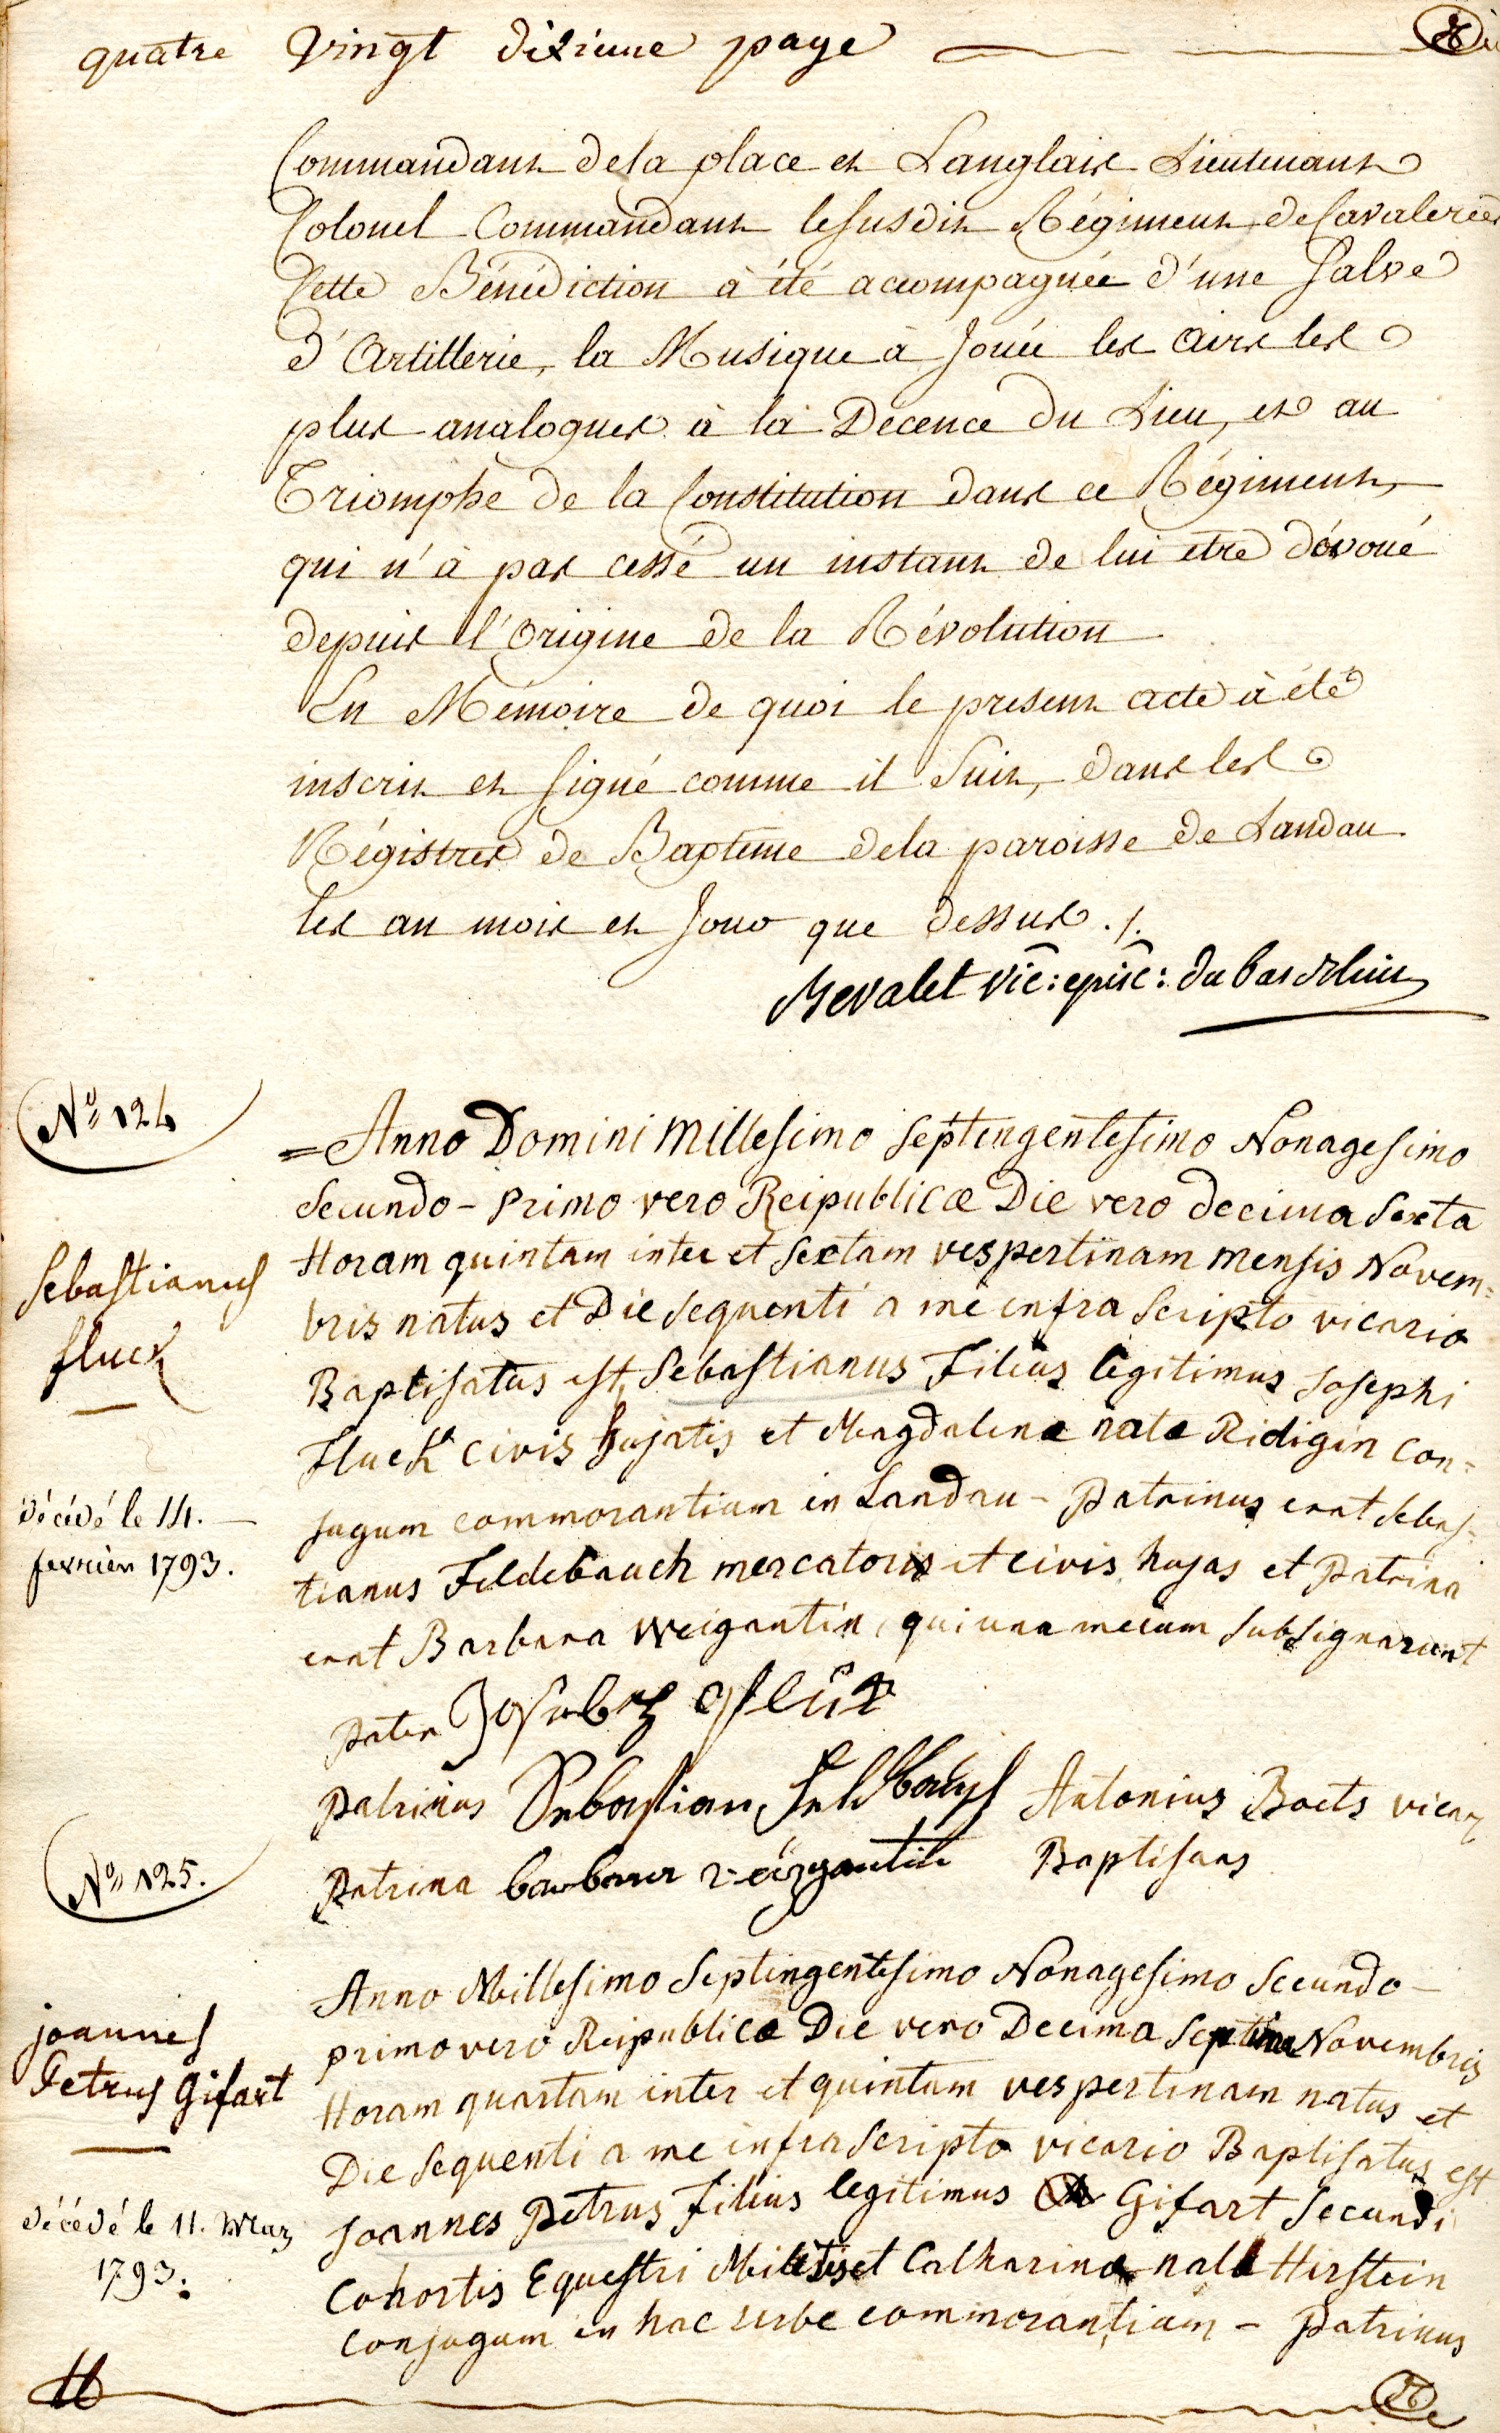 quatre Vingt dixieme page
Commandant dela place et Langlais Lieutenant
Colonel Commandant lesusdit Régiment de Cavalerie
Cette Bénédiction à été accompagnée d'une Salve
d'Artillerie, la Musique à Jouée les airs les
plus analogues à la Decence du Lieu, et au
Triomphe de la Constitution dans ce Régiment,
qui n'à pas cessé un instant de lui etre dévoué
depuis l'Origine de la Révolution
En Mémoire de quoi le present acte à été
inscrit et signé comme il Suit, dans les
Régistres de Bapteme dela paroisse de Landau
les an mois et Jour que dessus ./.
vic: episc: du bas Rhin
No 124
= Anno Domini Millesimo septengentesimo Nonagesimo
secundo - Primo vero Reipublicæ Die vero decima sexta
Horam quintam inter et sextam vespertinam mensis Novem=
bris natus et Die sequenti a me infra scripto vicario
Baptisatus est, Sebastianus Filius legitimus Josephi
Fluck civis hujatis et Magdalenæ natæ Ridigin con=
jugum commorantium in Landau - Patrinus erat Sebas=
tianus Feldebauch mercatoris et civis hujas et Patrina
erat Barbara Weigantin, qui una mecum subsignarunt
Sebastianus
fluck
décédé le 14.
fevrier 1793.
Pater Joseph Flück
Patrinus Sebastian Feldbauch Antonius Boets vicar
Patrina barbara weigantin Baptisans
No 125.
Anno Millesimo Septingentesimo Nonagesimo Secundo -
primo vero Reipublicæ Die vero Decima Septima Novembris
Horam quartam inter et quintam vespertinam natus et
Die sequenti a me infra scripto vicario Baptisatus est
Joannes Petrus Filius legitimus Gifart Secundi
Cohortis Equestri Militis et Catharinæ natæ Hirstein
conjugum in hac urbe commorantium - Patrinus
joannes
Petrus Gifart
décédé le 11. Mars
1793.